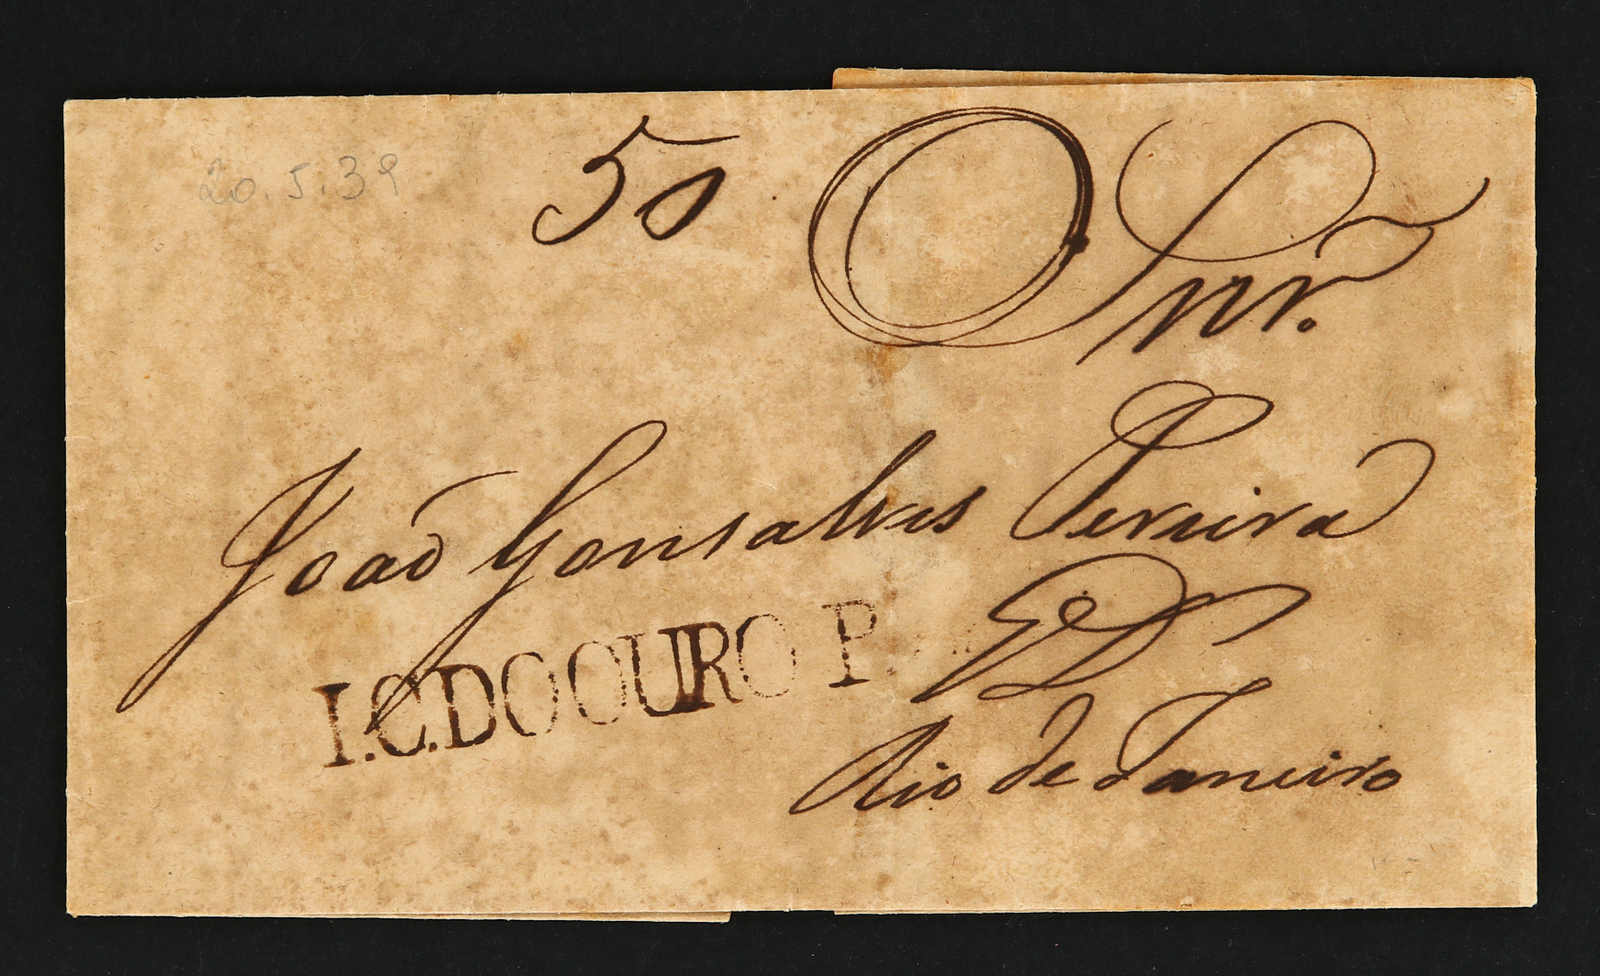 20.5.39
50
Snr.
Joaõ Gonsalves Pereira
I.C.DO OURO P.
Rio de Janeiro